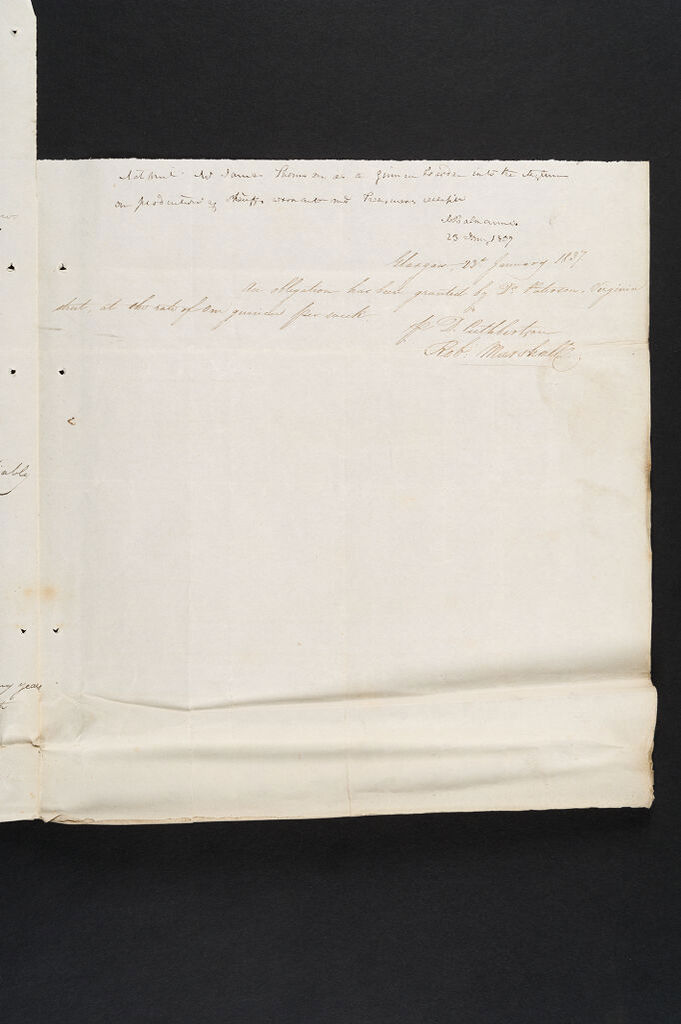 Admit Mr James Thomson as a guinea boarder into the Asylum
on production of Sheriffs warrant and Treasurers receipt
23 Jany 1837
Glasgow, 23d January 1837
An obligation has been granted by Dr Paterson, Virginia
street, at the rate of One guinea per week.
pr D. Cuthbertson
Robt Marshall
able
years